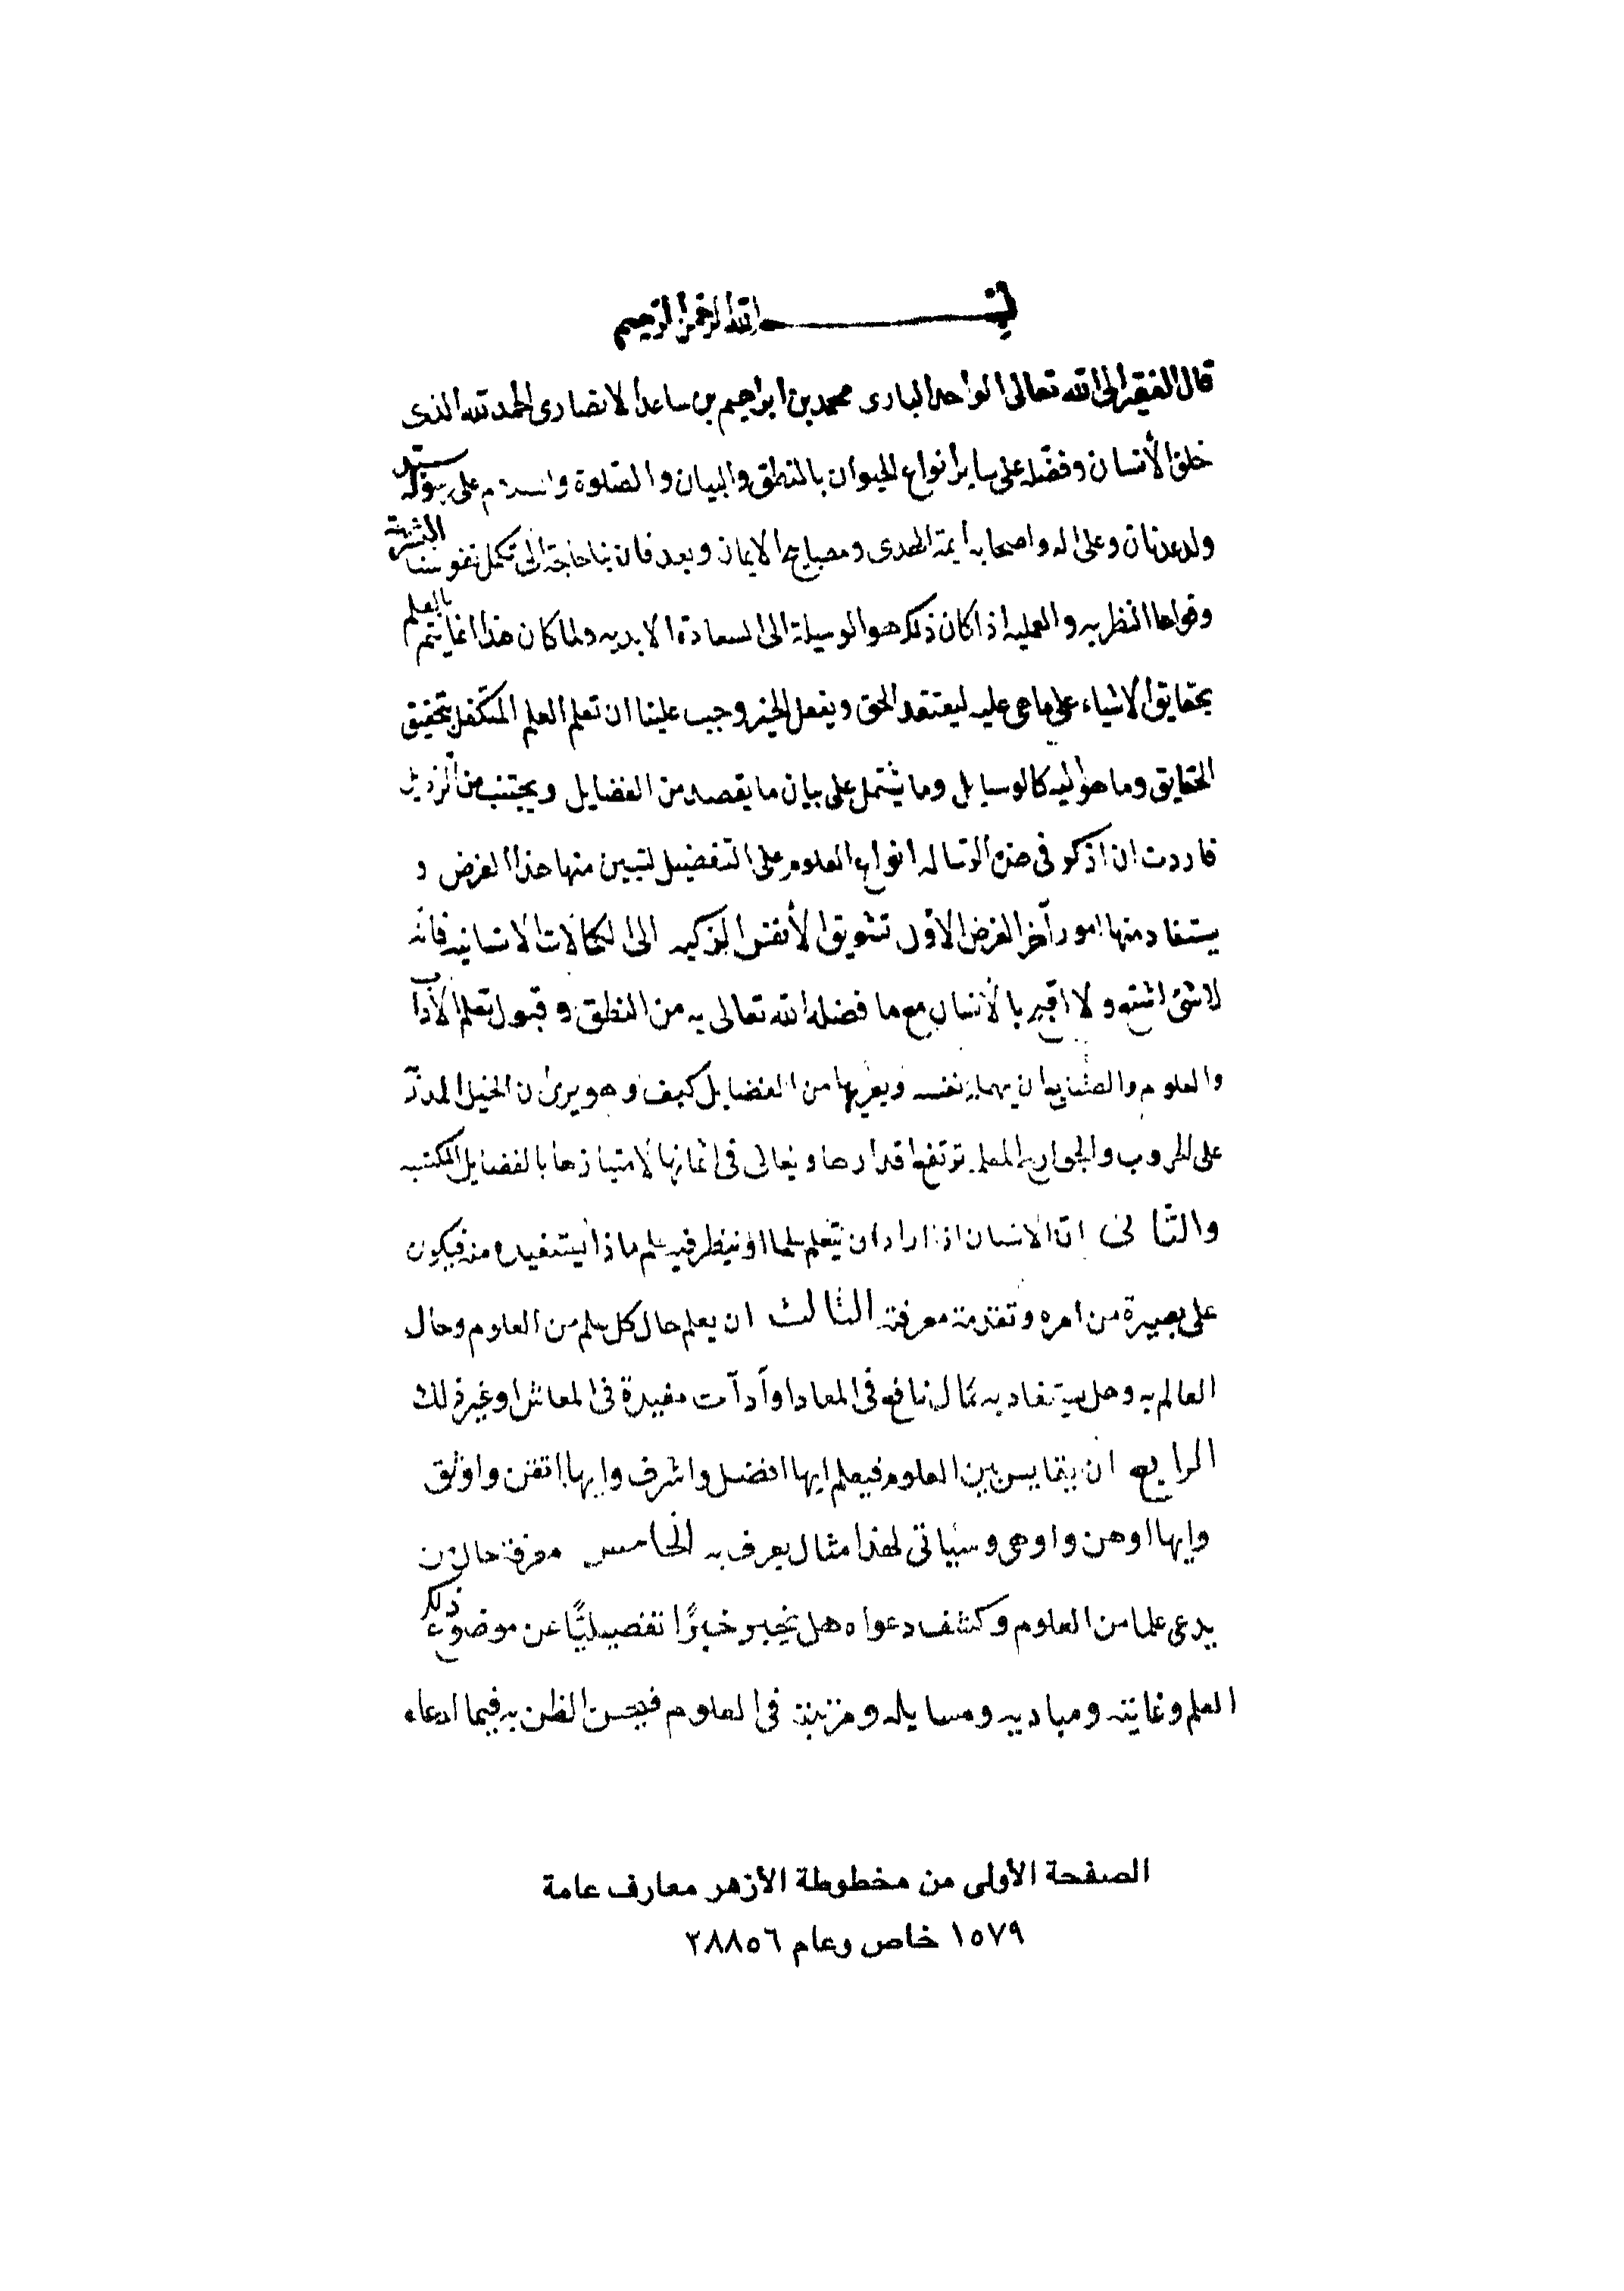 بسم الله الرحمن الرحيم
قال الفقير الى الله تعالى الواحد البارى محمد بن ابراهيم بن ساعد الانصارى الحمد لله الذى
خلق الأنسان وفضّله على ساير انواع الحيوان بالنطق والبيان والصّلوة والسلام على رسوله سيد
ولد عدنان وعلى اله واصحابه ايمة الهدى ومصابيح الايمان وبعد فان بنا حاجة الى تكمل نفوسنا البشرية
وقواها النظريه والعمليه اذ كان ذلك هو الوسيلة الى السعادة الابديه ولما كان هذا انما يتم بالعلم
بحقايق الاشياء على ما هى عليه ليعتقد الحق ويفعل الخير وجب علينا ان نعلم العلم المتكفل بتحقيق
الحقايق وما هو اليه كالوسايل وما يشتمل على بيان ما يقصد من الفضايل ويجتنب من الرذيل
فاردت ان اذكر فى هذه الرساله انواع العلوم على التفضيل لتبين منها هذا الغرض و
يستفاد منها امور آخر الغرض الاوّل تشويق الأنفس الزكيه الى الكمالات الانسانيه فانّه
لا شئ اشنع ولا اقبح بالأنسان مع ما فضله الله تعالى به من النطق وقبول تعلم الآداب
والعلوم والصنايع ان يهمل نفسه ويعريها من الفضايل كيف وهو يرى ان الخيل المدرّبة
على الحروب والجوارح المعلمه ترتفع اقدارها ويغالى فى اثمانها لامتيازها بالفضايل المكتسبه
والثانى انّ الانسان اذا اراد ان يتعلم علما او ينظر فيه علم ماذا يستفيده منه فيكون
على بصيرة من امره وتقدّمة معرفته الثالث ان يعلم حال كل علم من العلوم وحال
العالم به وهل يستفاد به كمال نافع فى المعاد او آدآت مفيدة فى المعاش او غير ذلك
الرابع ان يقايس بين العلوم فيعلم ايها افضل واشرف وايها اتقن واوثق
وايها اوهن واوهى وسيأتى لهذا مثال يعرف به الخامس معرفة حال من
يدعى علما من العلوم وكشف دعواه هل يخبر خبرًا تفصيليًّا عن موضوع ذلك
العلم وغايته ومباديه ومسايله ومرتبته فى العلوم فيحسن الظن به فيما ادعاه
الصفحة الأولى من مخطوطة الأزهر معارف عامة
١٥٧٩ خاص وعام ٢٨٨٥٦